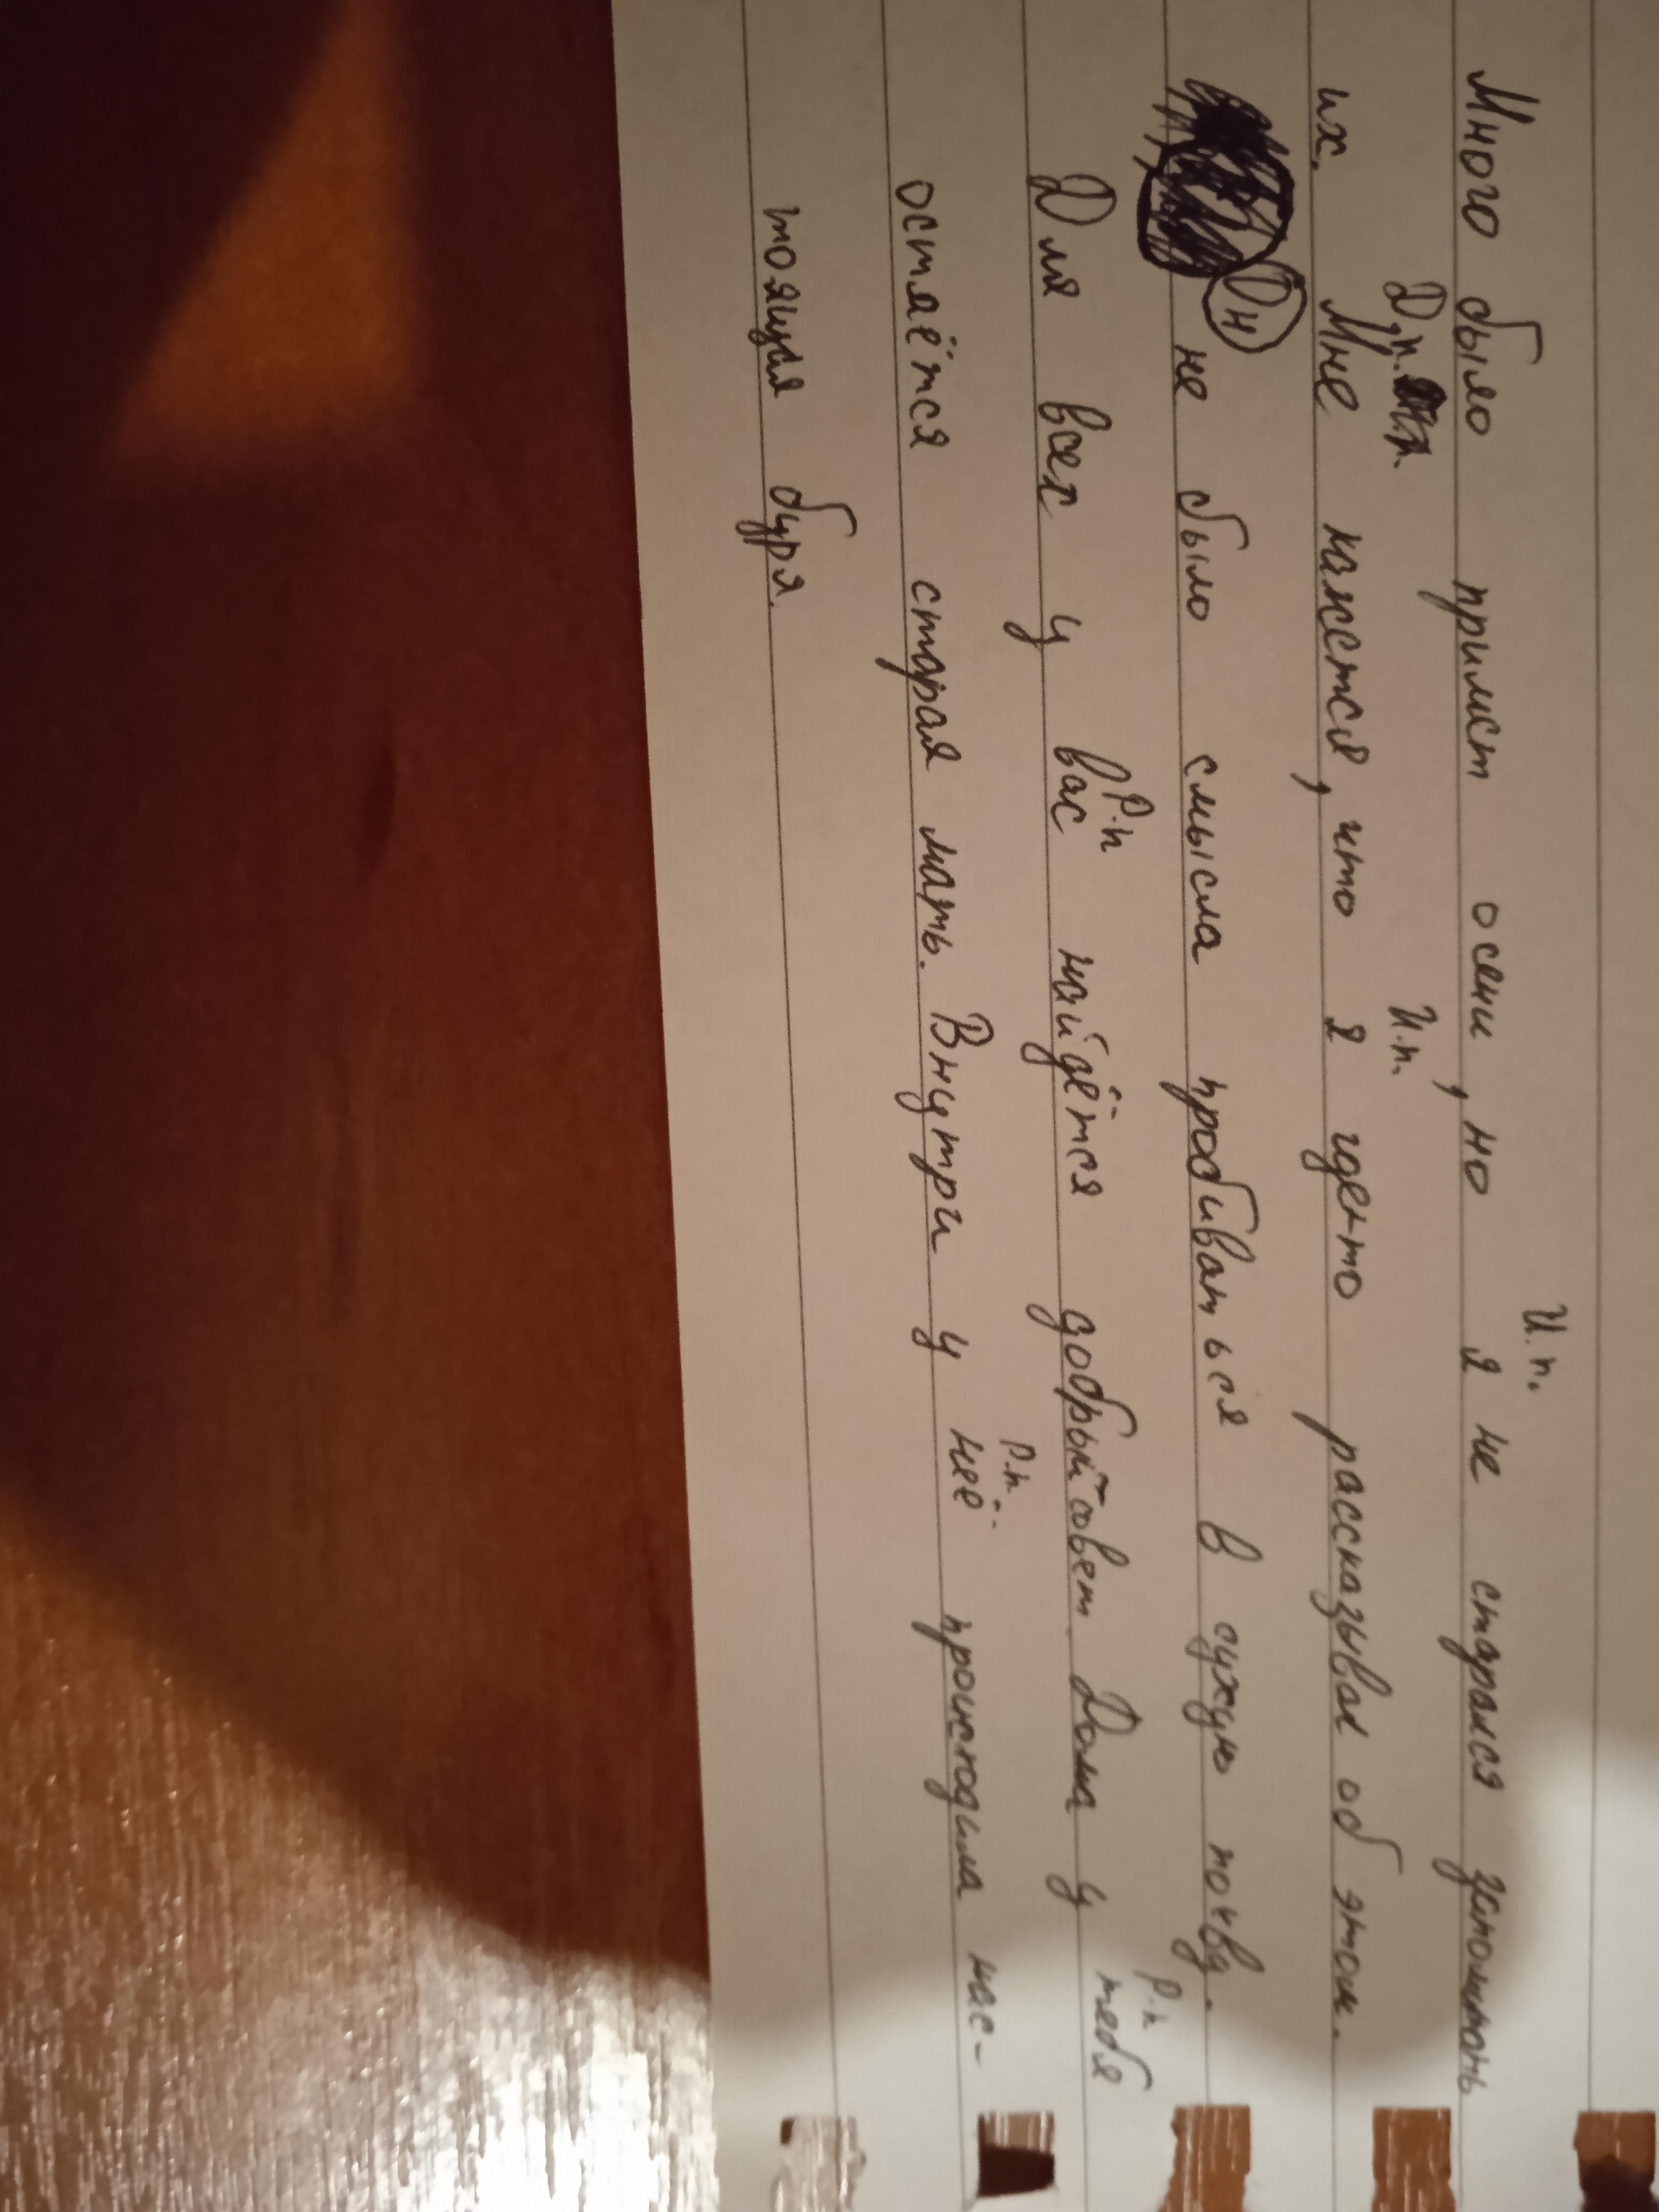 И.п.
Много было примет осени, но я не старался запомнить
Д.п. И.п.
их. Мне кажется, что я где-то рассказывал об этом.
Он не было смысла пробиваться в сухую почву.
Р.п Р.п
Для всех у вас найдётся добрый совет. Дома у тебя
остаётся старая мать. Внутри у неё происходила нас-
Р.п.
тоящая буря.